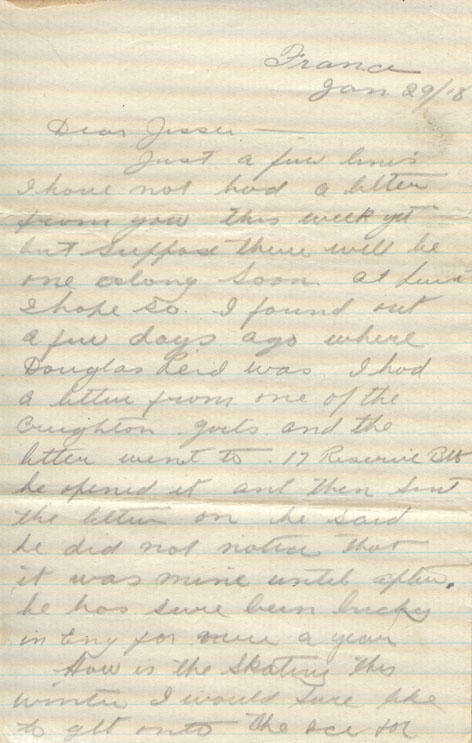 France
Jan 29/18
Dear Jessie
Just a few lines
I have not had a letter
from you this week yet
but suppose there will be
one along soon. at least
I hope so. I found out
a few days ago where
Douglas Reid was. I had
a letter from one of the
Creighton girls and the
letter went to. 17 Reserve Btt
he opened it and then sent
the letter on he said
he did not notice that
it was mine until after.
he has sure been lucky
in Eng for over a year
How is the Skating this
winter I would sure like
to get onto the ice for